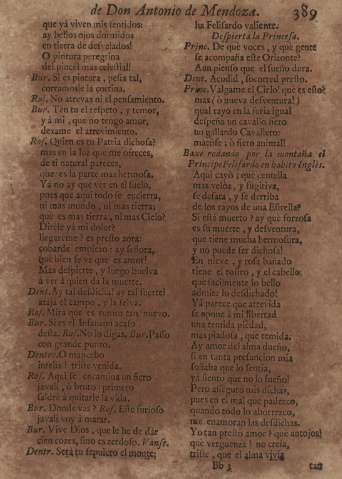 de Don Antonio de Mendoza. 389
que yá viven mis sentidos:
ay bellos ojos dormidos
en tierra de desvelados!
O pintura peregrina
del pincel mas celestial!
Bur. Si es pintura, pesia tal,
corramosle la cortina.
Ros. No atrevas ni el pensamiento.
Bur. Ten tu el respeto, y temor,
y á mi, que no tengo amor,
dexame el atrevimiento.
Ros. Quien es tu Patria dichosa?
mas en la luz que me ofreces,
de ti natural pareces,
que es la parte mas hermosa.
Yá no ay que ver en el suelo,
pues que aqui todo se encierra,
ni mas mundo, ni mas tierras
que es mas tierra, ni mas Cielo?
Direle yá mi dolor?
llegaréme? es presto aora:
cobarde entiendo: ay señora,
què bien se vè que es amor!
Mas despierte, y luego buelva
á ver á quien da la muerte.
Dent. Ay tal desdicha! ay tal suerte!
ataja el campo, y la selva.
Ros. Mira que es rumor tan nuevo.
Bur. Si es el Infantun acaso
desta. Ros. No lo digas. Bur. Passo
con grande punto.
Dentro. O mancebo
infeliz! triste venida.
Ros. Aqui se encamina un fiero
javali, ò bruto! primero
saldré á quitarle la vida.
Bur. Donde vas? Ros. Este furioso
javali voy á matar.
Bur. Vive Dios, que le he de dar
cien cozes, sino es zerdoso. Vanse.
Dentr. Será tu sepulcro el monte;
ha Felisardo valiente.
Despierta la Princesa.
Princ. De què voces, y què gente
se acompaña este Orizonte?
Aun pienso que el sueño dura.
Dent. Acudid, socorred presto.
Princ. Valgame el Cielo! que es esto?
mas (ò nueva desventura!)
qual rayo en la furia igual
despeña un cavallo fiero
un gallardo Cavallero:
matòse; ò fiero animal!
Baxe rodando por la montaña el
Principe Felisardo en habito Inglès.
Aqui cayò; què centella
mas veloz, y fugitiva,
se desata, y se derriba
de los rayos de una Estrella?
Si está muerto? ay que forzosa
es su muerte, y desventura,
que tiene mucha hermosura,
y no puede ser dichosa!
En nieve, y rosa bañado
tiene el rostro, y el cabello:
què facilmente lo bello
admite lo desdichado!
Yá parece que atrevida
se opone á mi libertad
una temida piedad,
mas piadosa, que temida.
Ay amor del alma dueño,
si en tanta presuncion mia
solicita que lo sentia,
yá siento que no lo sueño!
Pero disgusto mis dichas,
pues en el mal que padezco,
quando todo lo aborrezco,
me enamoran las desdichas.
Yo tan presto amor? què antojos!
què verguenza! no creia,
triste, que el alma vivia
Bb 3 tan